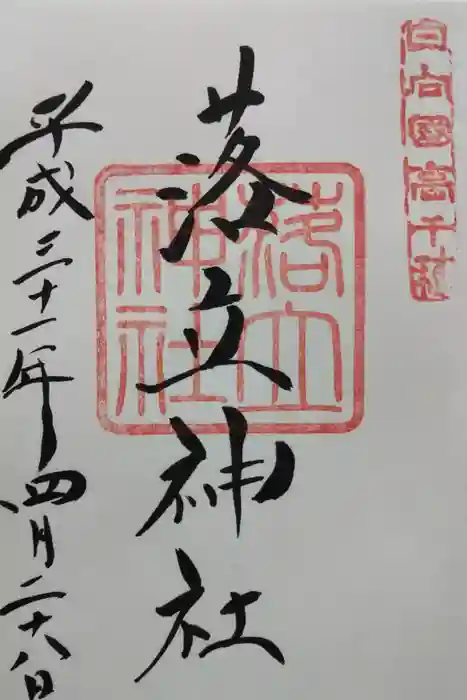 日向国高千穂
落立神社
落立神社
平成三十一年四月二十八日